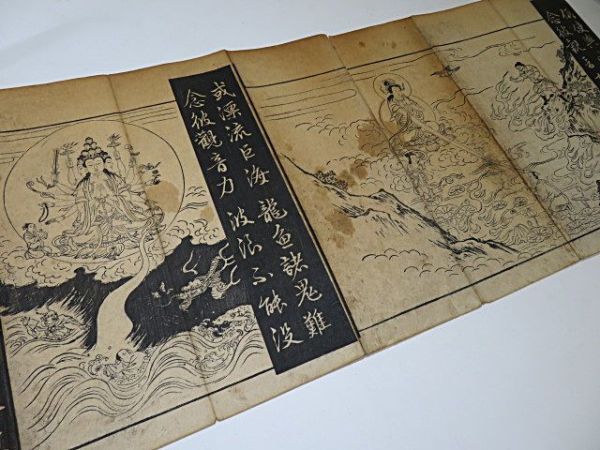 或漂流巨海 龍魚諸鬼難
念彼觀音力 波浪不能没
念彼觀